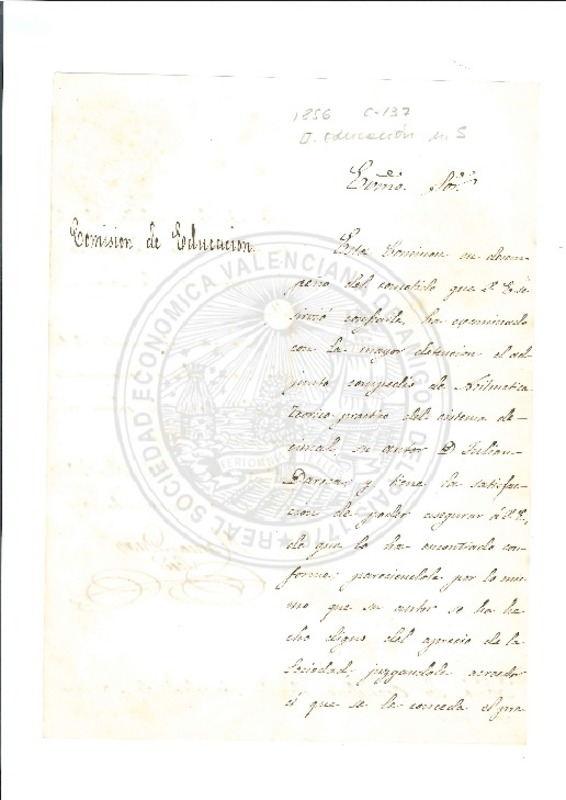 1856 C-137
D. Educación n. 5
Ecmo. Sor.
Comision de Educacion.
Esta Comision en desem-
peño del cometido que V.E. se
sirvió confiarle, ha examinado
con la mayor detencion el ad-
junto compedio de Aritmetica
teorico practico del sistema de-
cimal, su autor D Julian
y tiene la satisfac-
cion de poder asegurar á V.E.,
de que lo ha encontrado con-
forme; pareciendole por lo mis-
mo que su autor se ha he
cho digno del aprecio de la
Sociedad, juzgandole acreedor
á que se le conceda el
REAL SOCIEDAD ECONOMICA VALENCIANA DE AMIGOS DEL PAIS
1776